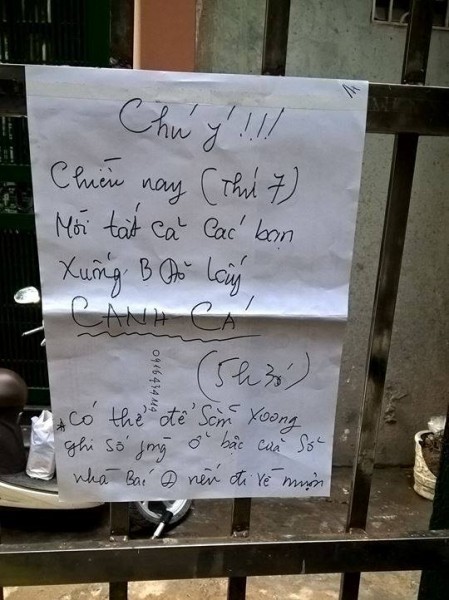 Chú ý!!!
Chiều nay (Thứ 7)
Mời tất cả các bạn
Xuống B lấy
CANH CÁ
(5h 30)
* Có thể để Sẵn Xoong
ghi số phòng ở bậc cửa Sổ
nhà Bác nếu đi về muộn